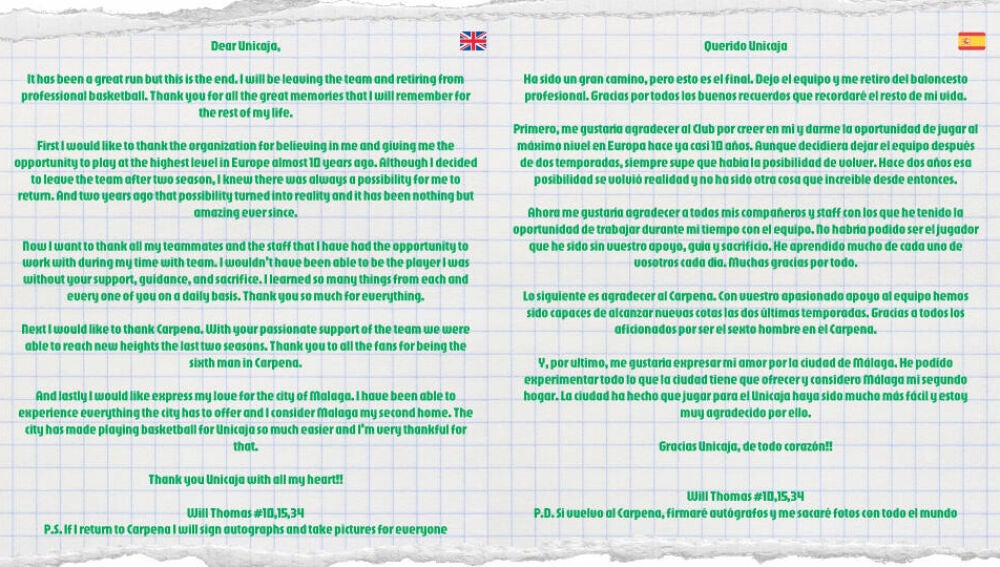 Dear Unicaja,
It has been a great run but this is the end. I will be leaving the team and retiring from
professional basketball. Thank you for all the great memories that I will remember for
the rest of my life.
First I would like to thank the organization for believing in me and giving me the
opportunity to play at the highest level in Europe almost 10 years ago. Although I decided
to leave the team after two season, I knew there was always a possibility for me to
return. And two years ago that possibility turned into reality and it has been nothing but
amazing ever since.
Now I want to thank all my teammates and the staff that I have had the opportunity to
work with during my time with team. I wouldn't have been able to be the player I was
without your support, guidance, and sacrifice. I learned so many things from each and
every one of you on a daily basis. Thank you so much for everything.
Next I would like to thank Carpena. With your passionate support of the team we were
able to reach new heights the last two seasons. Thank you to all the fans for being the
sixth man in Carpena.
And lastly I would like express my love for the city of Malaga. I have been able to
experience everything the city has to offer and I consider Malaga my second home. The
city has made playing basketball for Unicaja so much easier and I'm very thankful for
that.
Thank you Unicaja with all my heart!!
Will Thomas #10,15,34
P.S. If I return to Carpena I will sign autographs and take pictures for everyone
Querido Unicaja
Ha sido un gran camino, pero esto es el final. Dejo el equipo y me retiro del baloncesto
profesional. Gracias por todos los buenos recuerdos que recordaré el resto de mi vida.
Primero, me gustaría agradecer al Club por creer en mi y darme la oportunidad de jugar al
máximo nivel en Europa hace ya casi 10 años. Aunque decidiera dejar el equipo después
de dos temporadas, siempre supe que había la posibilidad de volver. Hace dos años esa
posibilidad se volvió realidad y no ha sido otra cosa que increíble desde entonces.
Ahora me gustaría agradecer a todos mis compañeros y staff con los que he tenido la
oportunidad de trabajar durante mi tiempo con el equipo. No habría podido ser el jugador
que he sido sin vuestro apoyo, guía y sacrificio. He aprendido mucho de cada uno de
vosotros cada día. Muchas gracias por todo.
Lo siguiente es agradecer al Carpena. Con vuestro apasionado apoyo al equipo hemos
sido capaces de alcanzar nuevas cotas las dos últimas temporadas. Gracias a todos los
aficionados por ser el sexto hombre en el Carpena.
Y, por ultimo, me gustaría expresar mi amor por la ciudad de Málaga. He podido
experimentar todo lo que la ciudad tiene que ofrecer y considero Málaga mi segundo
hogar. La ciudad ha hecho que jugar para el Unicaja haya sido mucho más fácil y estoy
muy agradecido por ello.
Gracias Unicaja, de todo corazón!!
Will Thomas #10,15,34
P.D. Si vuelvo al Carpena, firmaré autógrafos y me sacaré fotos con todo el mundo